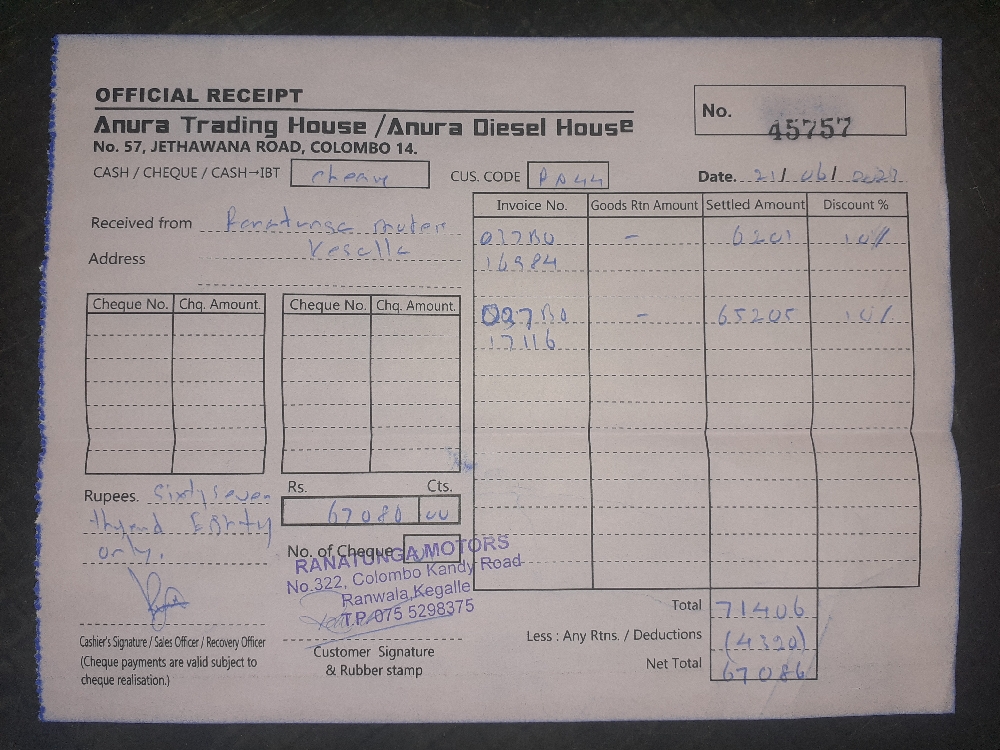 OFFICIAL RECEIPT
Anura Trading House / Anura Diesel House
No. 57, JETHAWANA ROAD, COLOMBO 14.
No. 45757
CASH / CHEQUE / CASH→IBT cheque
CUS. CODE
Date. 21/ 06/
Received from Ranatunga Moter
Address Kegalle
Invoice No. Goods Rtn Amount Settled Amount Discount %
017B0 - 6201 10%
16984
027B0 - 65205 10%
17116
Cheque No. Chq. Amount. Cheque No. Chq. Amount.
Rupees. Sixty seven
thousand Eighty
only.
Rs. Cts.
67080 00
No. of Cheque
RANATUNGA MOTORS
No.322, Colombo Kandy Road
Ranwala, Kegalle
T.P. 075 5298375
Total 71406
Less : Any Rtns. / Deductions (4320)
Net Total 67086
Cashier's Signature / Sales Officer / Recovery Officer
(Cheque payments are valid subject to
cheque realisation.)
Customer Signature
& Rubber stamp